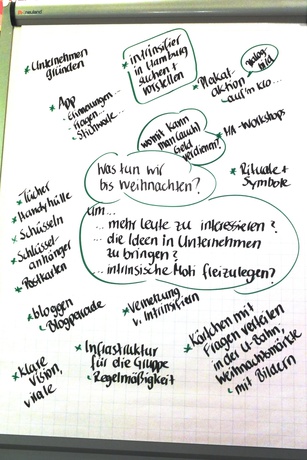 neuland
* Unternehmen
gründen
* intrinsifier
in Hamburg
suchen +
vorstellen
* Plakat-
aktion
auf'm Klo...
* App
Erinnerungen...
Fragen...
Stichworte...
womit kann
man (auch)
Geld
verdienen?
* MA-Workshops
Was tun wir
bis Weihnachten?
* Rituale +
Symbole
um...
... mehr Leute zu interessieren?
... die Ideen in Unternehmen
zu bringen?
... intrinsische Moti freizulegen?
* Tücher
* Handyhülle
* Schüsseln
* Schlüssel-
anhänger
* Postkarten
* bloggen
Blogparade
* Vernetzung
v. Intrinsifiern
* Kärtchen mit
Fragen verteilen
in der U-Bahn,
Weihnachtsmärkte
mit Bildern
* Infrastruktur
für die Gruppe
Regelmäßigkeit
* klare
Vision,
virale